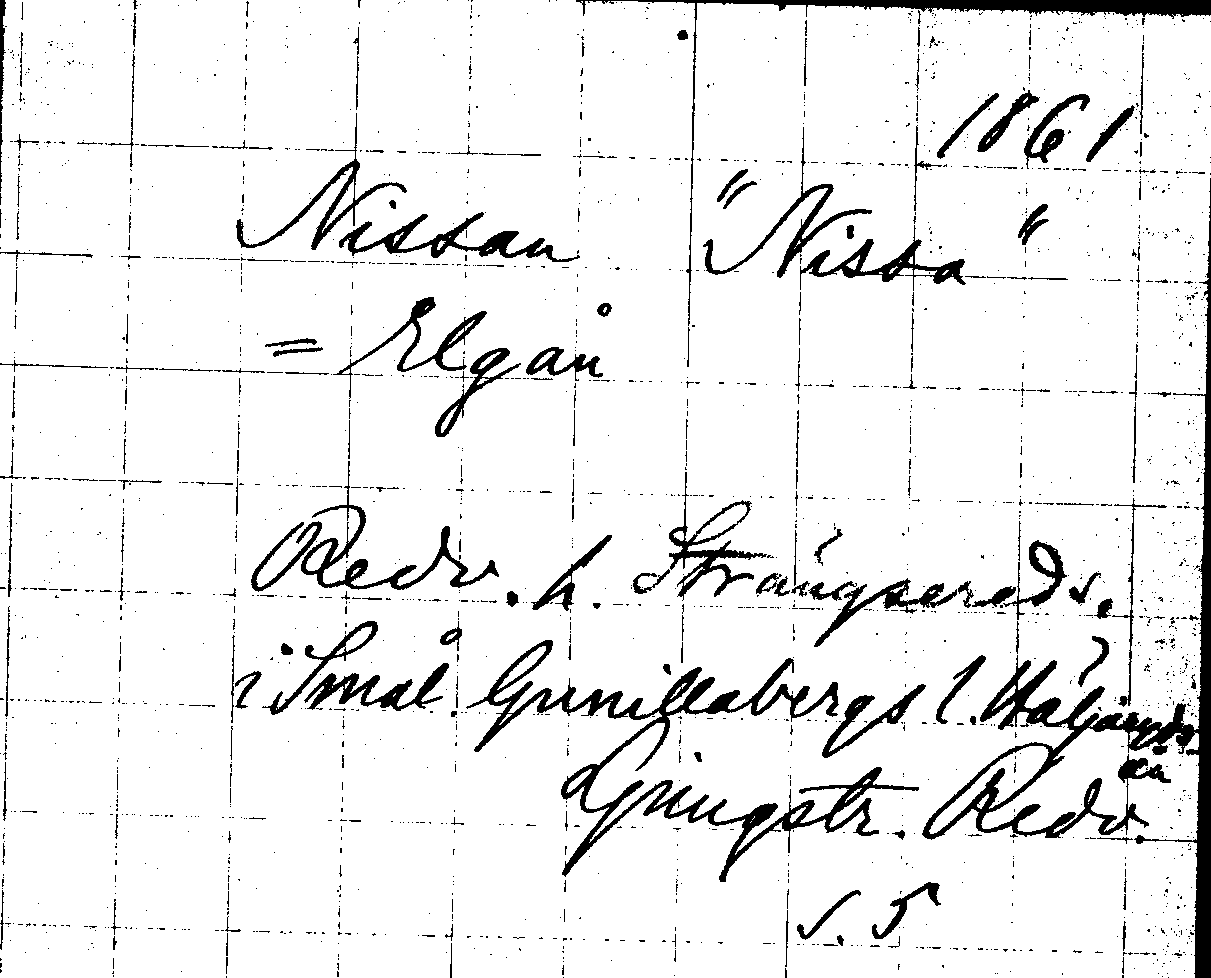 1861
Nissan "Nissa"
= Elgån
Redv. h. Strängsereds.
i Smål. Gunillabergs l. Häljaryds
ån
Ljungstr. Redv.
s. 5